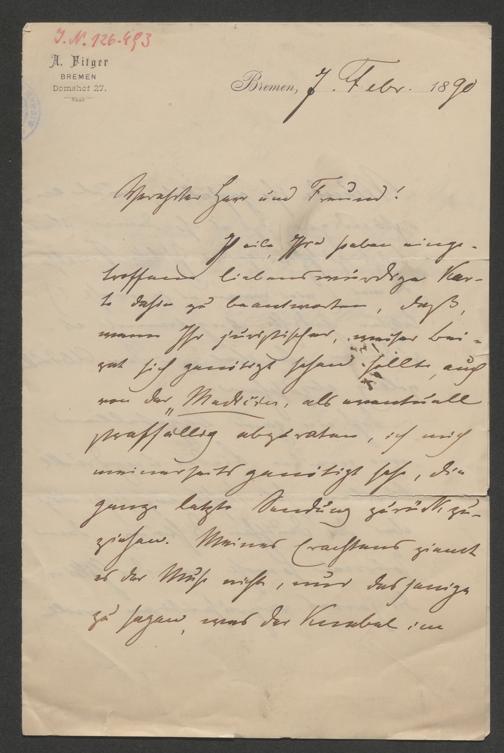 J.N. 126.493
A. Fitger
BREMEN
Domshof 27.
Bremen, 7. Febr. 1890
Verehrter Herr und Freund!
Ich eile, Ihre soeben einge-
troffene liebenswürdige Kar-
te dahin zu beantworten, daß,
wenn Ihr juristischer, weiser Bei-
rat sich genötigt sehen sollte, auch
von der „Medicin, als eventuell
straffällig abzuraten, ich mich
meinerseits genötigt sehe, die
ganze letzte Sendung zurückzu-
ziehen. Meines Erachtens ziemt
es der Muse nicht, nur dasjenige
zu sagen, was der Knebel im